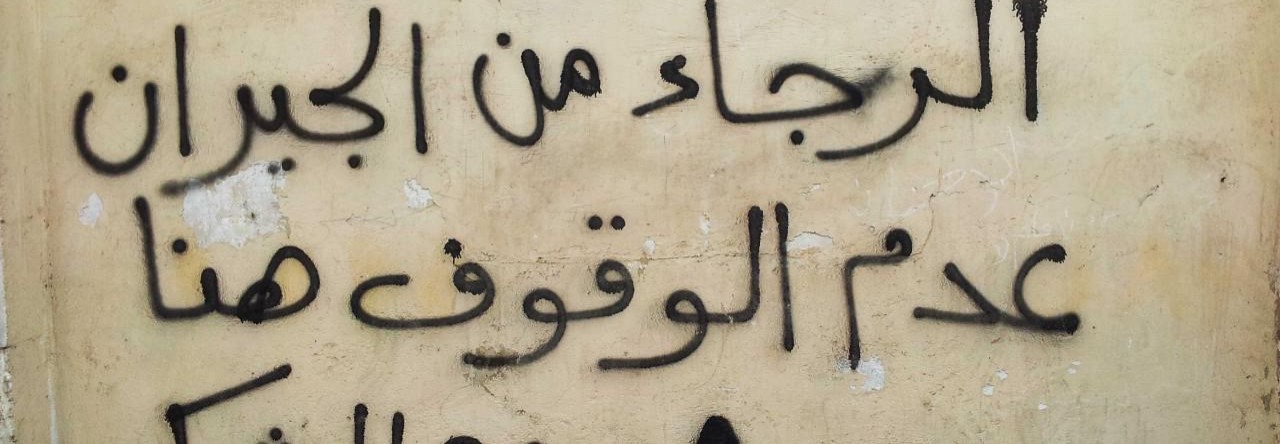 الرجاء من الجيران
عدم الوقوف هنا